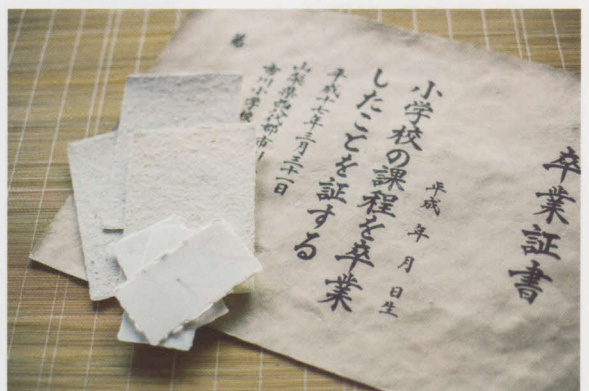 卒業証書
平成 年 月 日生
小学校の課程を卒業
したことを証する
平成十七年三月三十一日
山梨県西八代郡市川
市川小学校